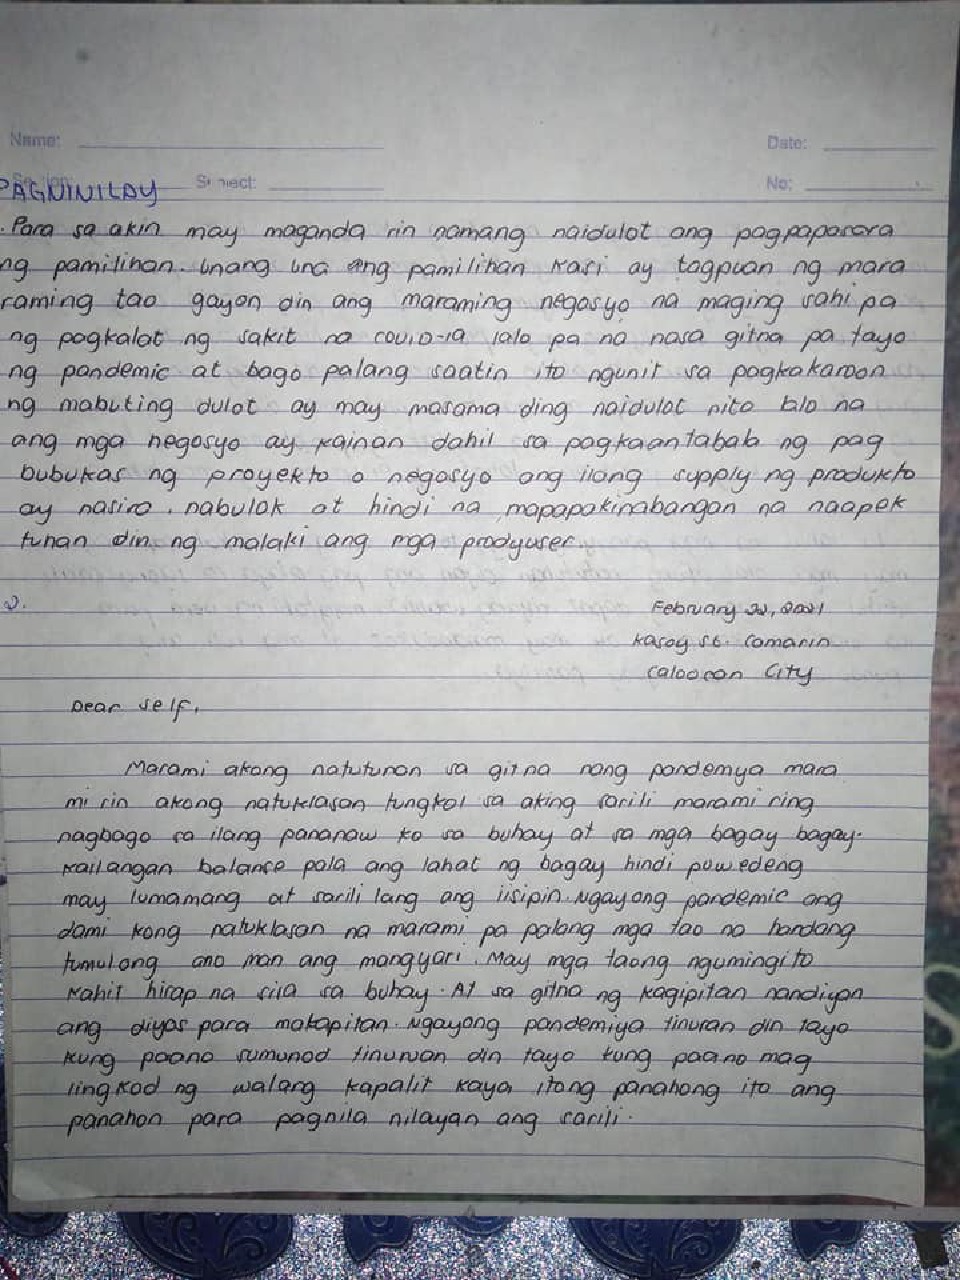 Name:
Date:
Section:
Subject:
No:
PAGNINILAY
. Para sa akin may maganda rin namang naidulot ang pagpapasara
ng pamilihan. Unang una ang pamilihan kasi ay tagpuan ng mara
raming tao gayon din ang maraming negosyo na maging sahi pa
ng pagkalat ng sakit na covid-19 lalo pa na nasa gitna pa tayo
ng pandemic at bago palang saatin ito ngunit sa pagkakaroon
ng mabuting dulot ay may masama ding naidulot nito lalo na
ang mga negosyo ay kainan dahil sa pagkaantabab ng pag
bubukas ng proyekto o negosyo ang ilang supply ng produkto
ay nasira, nabulok at hindi na mapapakinabangan na naapek
tuhan din ng malaki ang mga prodyuser
2.
February 22, 2021
Kasoy st. Camarin
Caloocan City
Dear self,
Marami akong natutunan sa gitna nang pandemya mara
mi rin akong natuklasan tungkol sa aking sarili marami ring
nagbago sa ilang pananaw ko sa buhay at sa mga bagay bagay.
Kailangan balance pala ang lahat ng bagay hindi puwedeng
may lumamang at sarili lang ang iisipin. Ngayong pandemic ang
dami kong natuklasan na marami pa palang mga tao na handang
tumulong ano man ang mangyari. May mga taong ngumingiti to
kahit hirap na sila sa buhay. At sa gitna ng kagipitan nandiyan
ang diyos para makapitan. Ngayong pandemiya tinuran din tayo
kung paano sumunod tinuruan din tayo kung paano mag
lingkod ng walang kapalit kaya itong panahong ito ang
panahon para pagnila nilayan ang sarili.